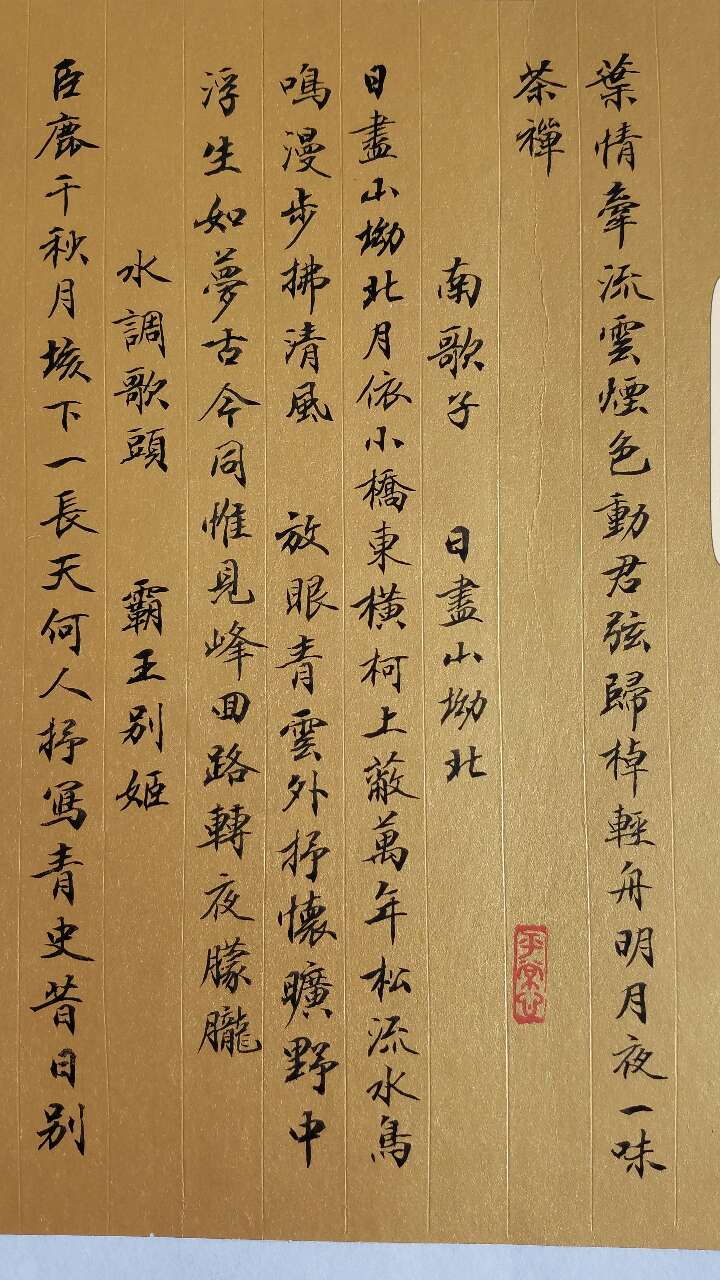 葉情牽流雲煙色動君弦歸棹輕舟明月夜一味
茶禪
平常心
南歌子 日盡山坳北
日盡山坳北月依小橋東橫柯上蔽萬年松流水鳥
鳴漫步拂清風 放眼青雲外抒懷曠野中
浮生如夢古今同惟見峰回路轉夜朦朧
水調歌頭 霸王別姬
臣鹿千秋月垓下一長天何人抒寫青史昔日別